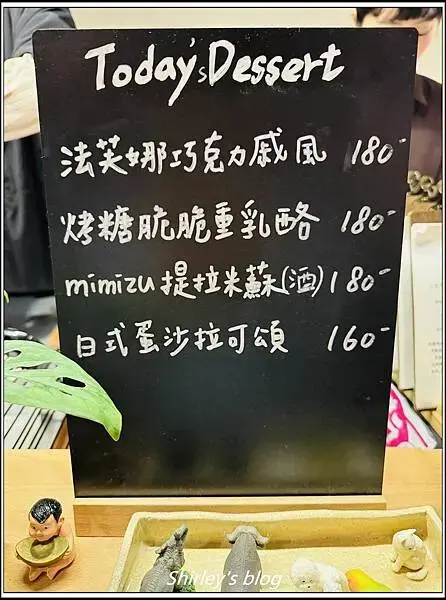 Today's Dessert
法芙娜巧克力戚風 180-
烤糖脆脆重乳酪 180-
mimizu提拉米蘇(酒) 180-
日式蛋沙拉可頌 160-
Shirley's blog